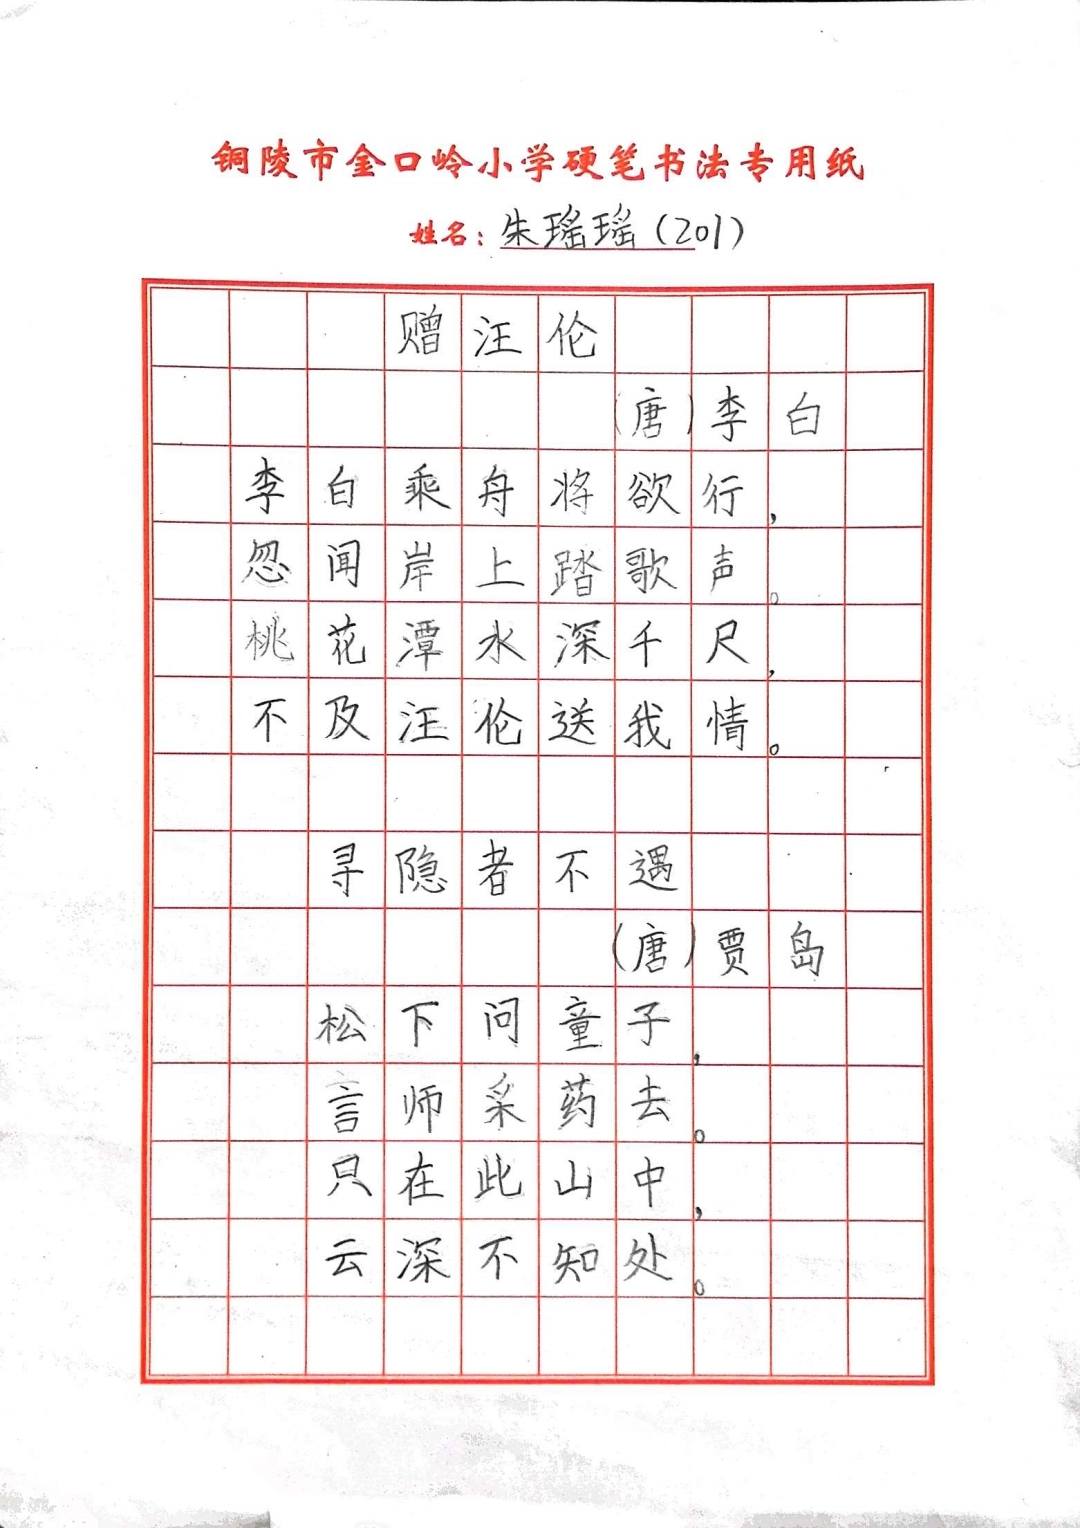 铜陵市金口岭小学硬笔书法专用纸
姓名：朱瑶瑶（201）
赠汪伦
（唐）李白
李白乘舟将欲行，
忽闻岸上踏歌声。
桃花潭水深千尺，
不及汪伦送我情。
寻隐者不遇
（唐）贾岛
松下问童子，
言师采药去。
只在此山中，
云深不知处。